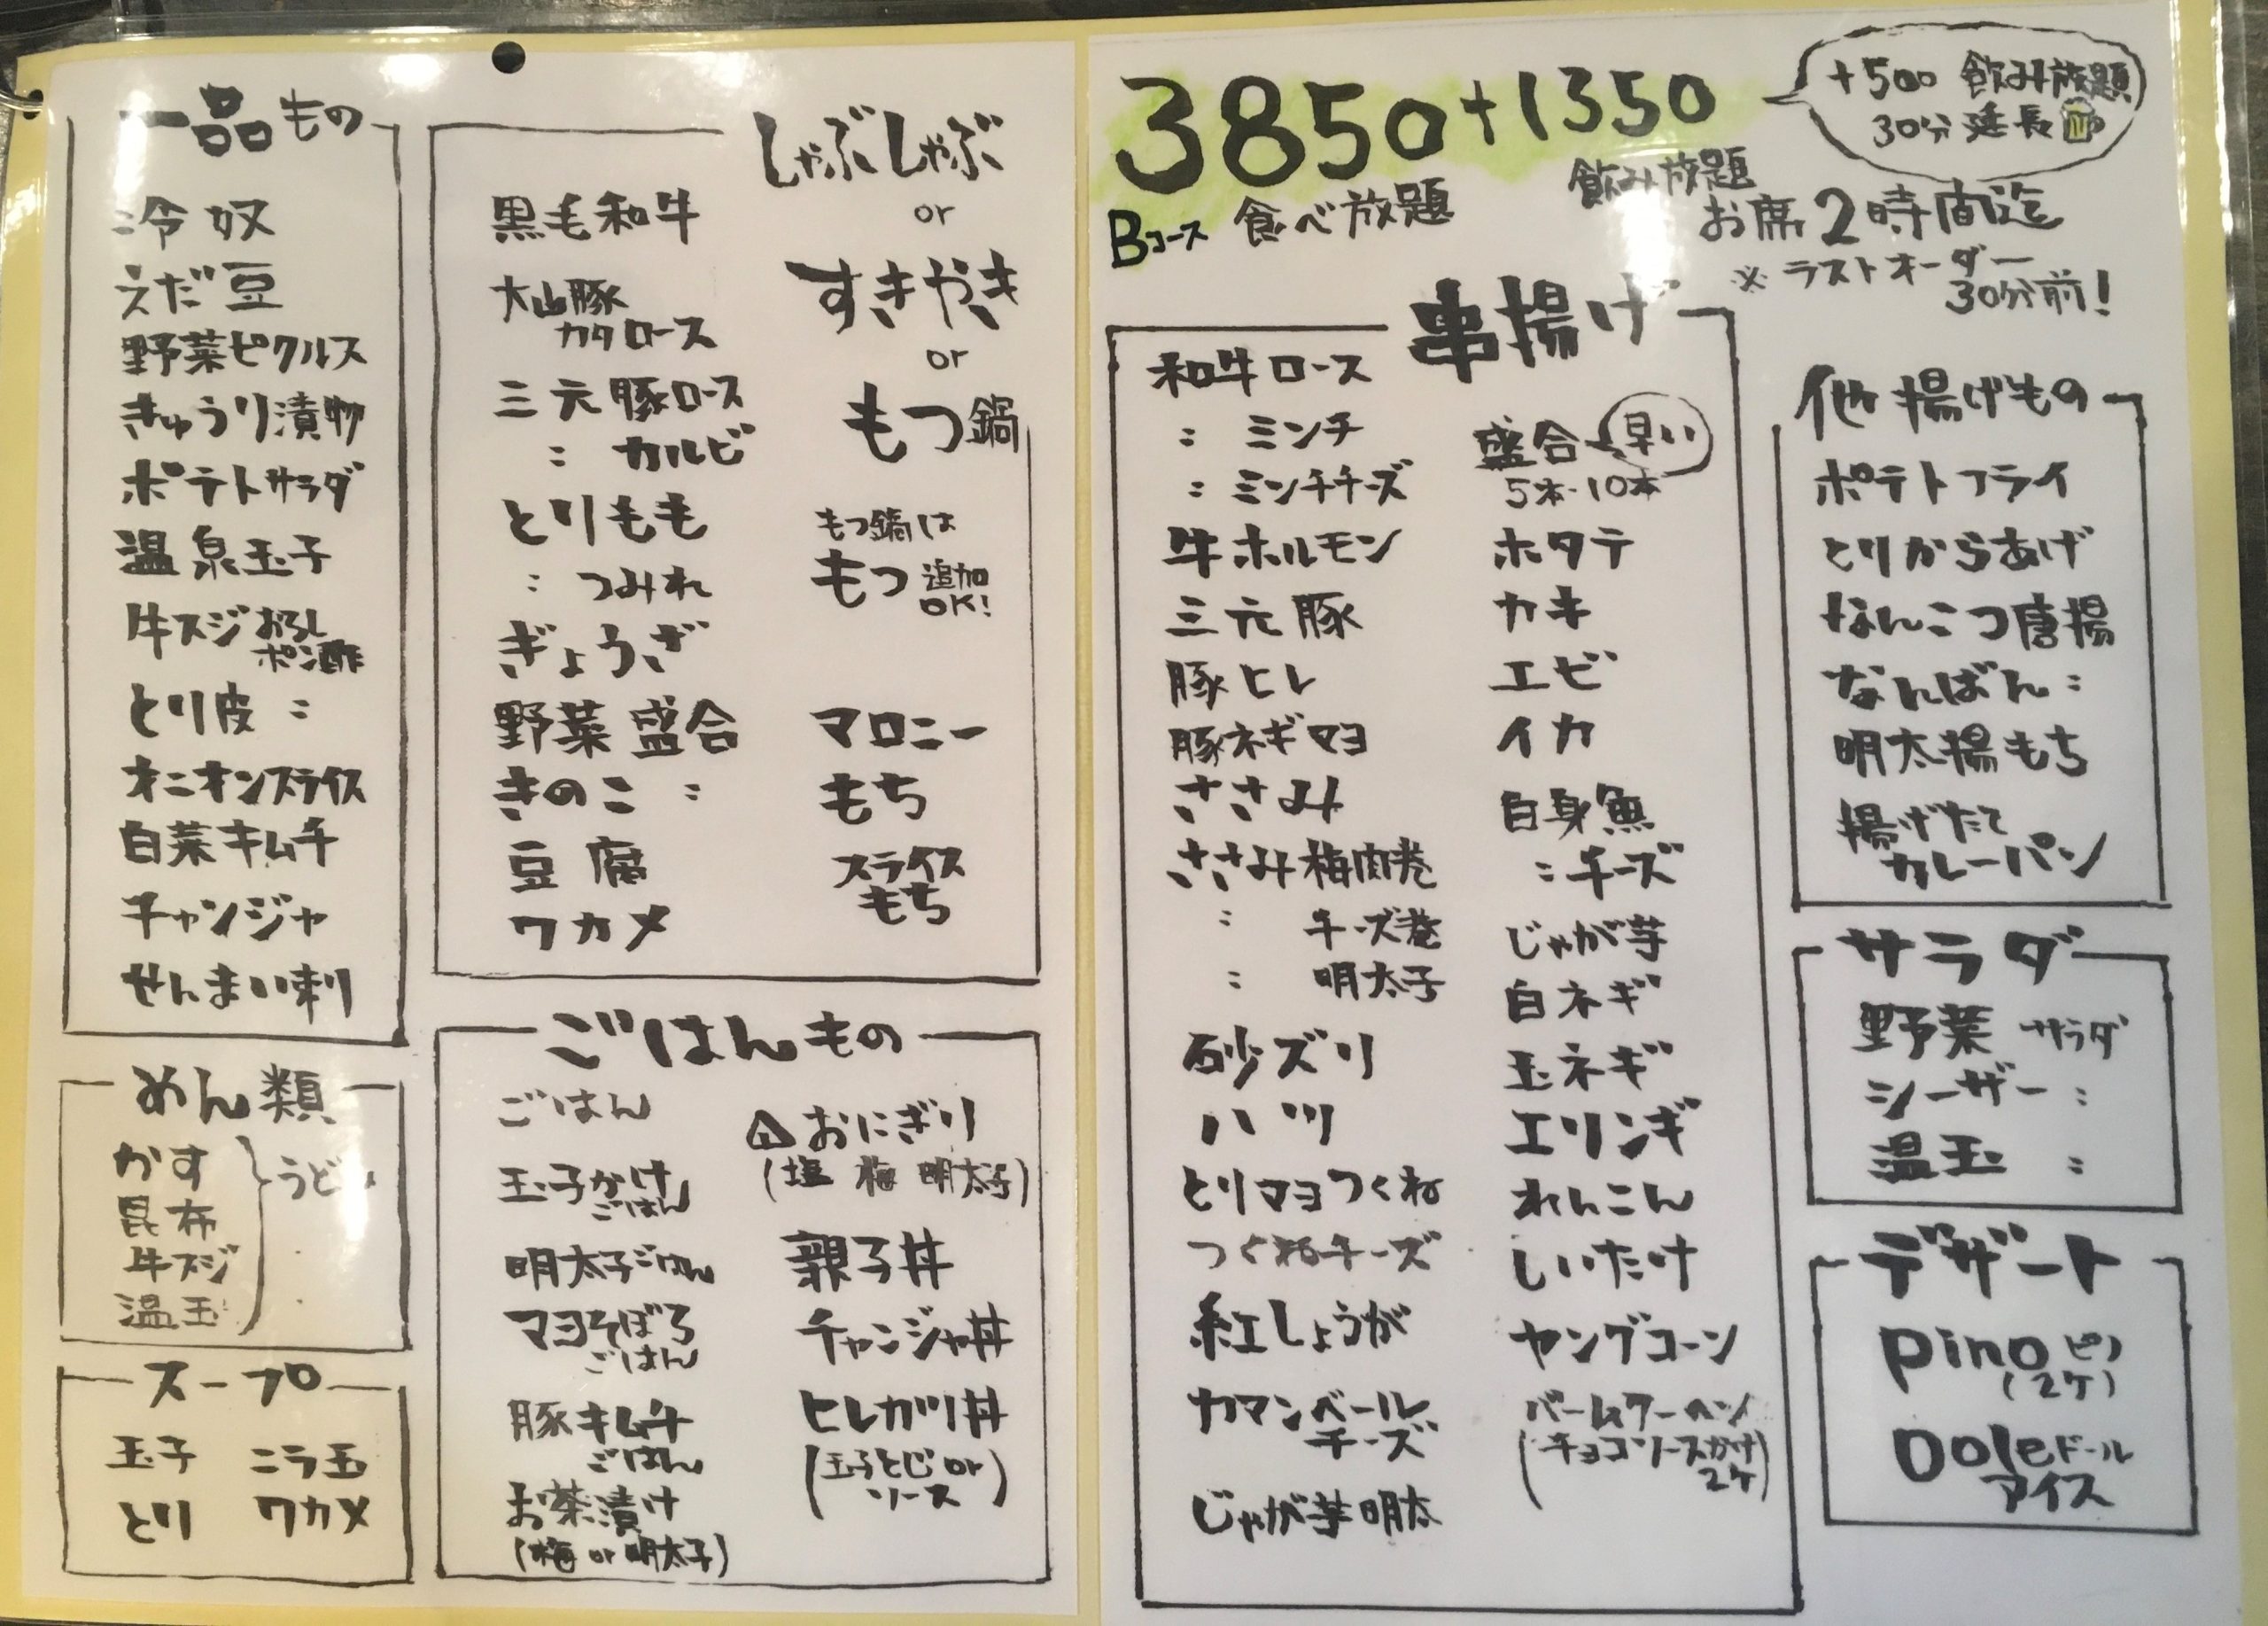 一品もの
冷奴
えだ豆
野菜ピクルス
きゅうり漬物
ポテトサラダ
温泉玉子
牛スジおろし
ポン酢
とり皮 〃
オニオンスライス
白菜キムチ
チャンジャ
せんまい刺
めん類
かす
昆布
牛スジ
温玉
うどん
スープ
玉子 ニラ玉
とり ワカメ
しゃぶしゃぶ
or
すきやき
or
もつ鍋
黒毛和牛
大山豚
カタロース
三元豚ロース
〃 カルビ
とりもも
〃 つみれ
ぎょうざ
野菜盛合
きのこ 〃
豆腐
ワカメ
もつ鍋は
もつ追加
OK!
マロニー
もち
スライス
もち
ごはんもの
ごはん
玉子かけ
ごはん
明太子ごはん
マヨそぼろ
ごはん
豚キムチ
ごはん
お茶漬け
(梅 or 明太子)
おにぎり
(塩 梅 明太子)
親子丼
チャンジャ丼
ヒレカツ丼
(玉子とじ or
ソース)
3850+1350
+500 飲み放題
30分延長
Bコース 食べ放題
飲み放題
お席2時間迄
※ラストオーダー
30分前!
串揚げ
和牛ロース
〃 ミンチ
〃 ミンチチーズ
牛ホルモン
三元豚
豚ヒレ
豚ネギマヨ
ささみ
ささみ梅肉巻
〃 チーズ巻
〃 明太子
砂ズリ
ハツ
とりマヨつくね
つくねチーズ
紅しょうが
カマンベール
チーズ
じゃが芋明太
盛合 早い
5本・10本
ホタテ
カキ
エビ
イカ
白身魚
〃チーズ
じゃが芋
白ネギ
玉ネギ
エリンギ
れんこん
しいたけ
ヤングコーン
バームクーヘン
(チョコソースかけ
2ケ)
他揚げもの
ポテトフライ
とりからあげ
なんこつ唐揚
なんばん 〃
明太揚もち
揚げたて
カレーパン
サラダ
野菜サラダ
シーザー 〃
温玉 〃
デザート
pino ピノ
(2ケ)
Dole ドール
アイス